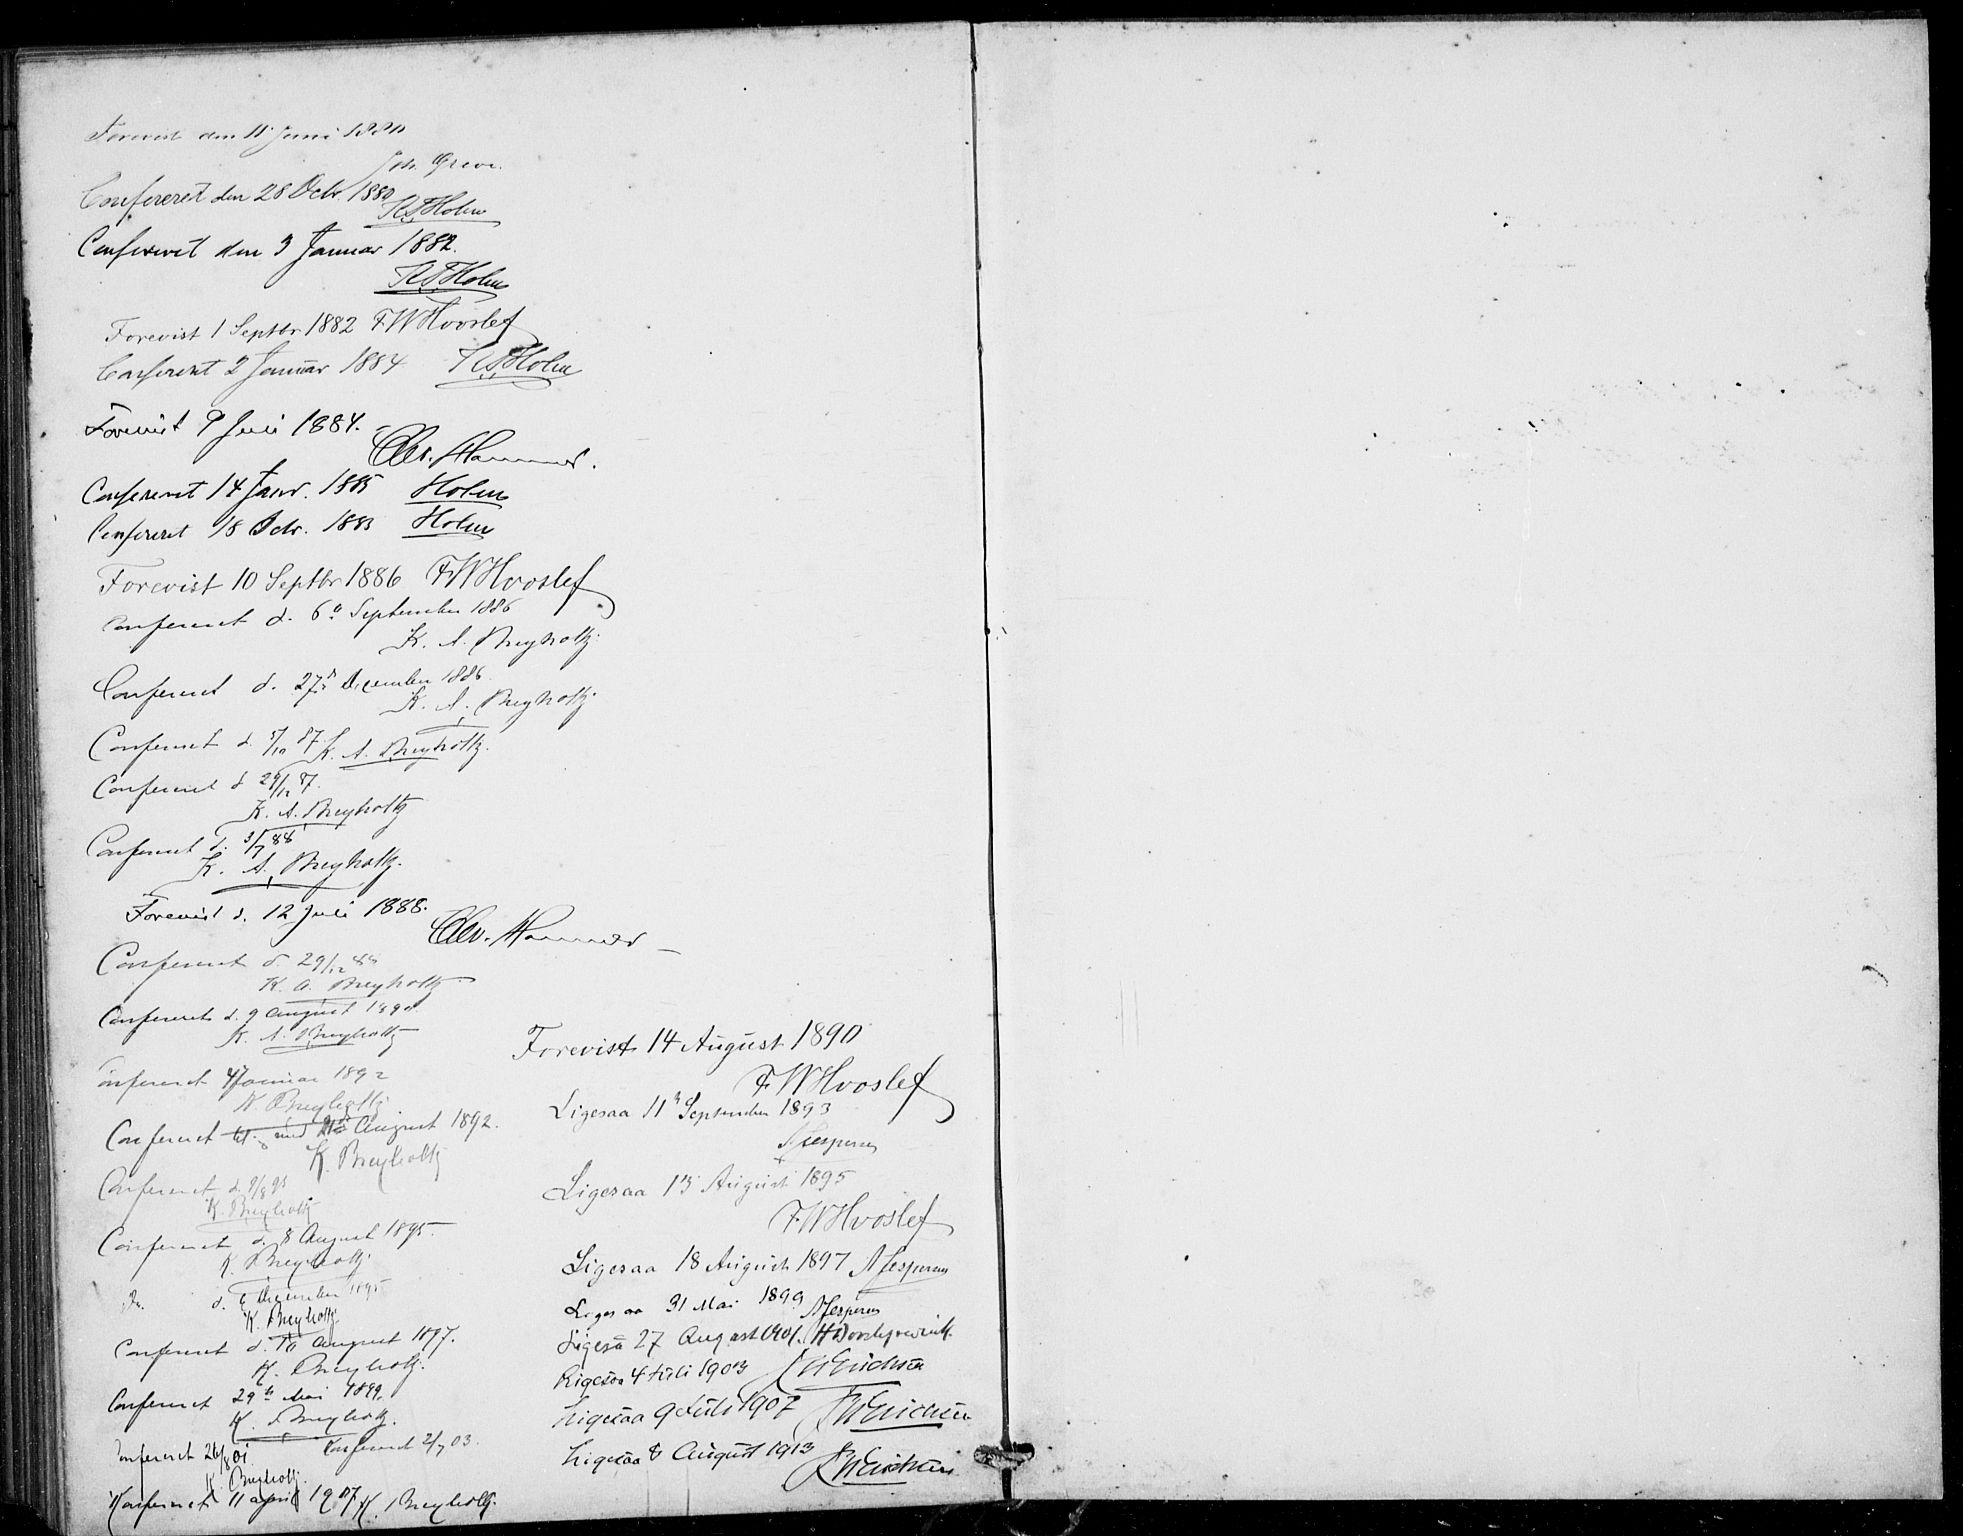 Forevist den 11 Juni 1880
Joh. Greve.
Confereret den 28 Octr. 1880
K. S. Holm
Confereret den 3 Januar 1882.
K. S. Holm
Forevist 1 Septbr 1882 FWHvoslef
Confereret 2 Januar 1884 Holm
Forevist 9 Juli 1884.
Chr. Hammer.
Confereret 14 Janr. 1885 Holm
Confereret 18 Octr. Holm
Forevist 10 Septbr 1886 FWHvoslef
Confereret d. 6te September 1886
K. A. Breyholtz.
Confereret d. 27de December 1886.
K. A. Breyholtz
Confereret d. 5/10 87. K. A. Breyholtz.
Confereret d 29/12 87.
K. A. Breyholtz
Confereret d. 3/7 88
K. A. Breyholtz.
Forevist d. 12 Juli 1888.
Chr. Hammer
Confereret d. 29/12 88
K. A. Breyholtz
Confereret d. 9 August 1890.
K. A. Breyholtz
Confereret 4 Januar 1892
K. Breyholtz
Confereret August 1892.
K. Breyholtz
Confereret d. 9/8 93
K. Breyholtz
Confereret d. 8 August 1895.
K. Breyholtz.
Do. d. December 1895
K. Breyholtz
Confereret d. 10 August 1897.
K. Breyholtz.
Confereret 29de Mai 1899.
K. Breyholtz.
Confereret 26/8 01. Confereret 2/7 03.
K. Breyholtz.
Konfereret 11 april 1907 K. Breyholtz.
Forevist 14 August 1890
FWHvoslef
Ligesaa 11te September 1893
N Jespersen
Ligesaa 13 August 1895
FWHvoslef
Ligesaa 18 August 1897 N Jespersen
Ligesaa 31 Mai 1899 N Jespersen
Ligeså 27 August 1901.
Ligesaa 4 Juli 1903 Erichsen
Ligesaa 9 Juli 1907 Erichsen
Ligesaa 8 August 1913 Erichsen